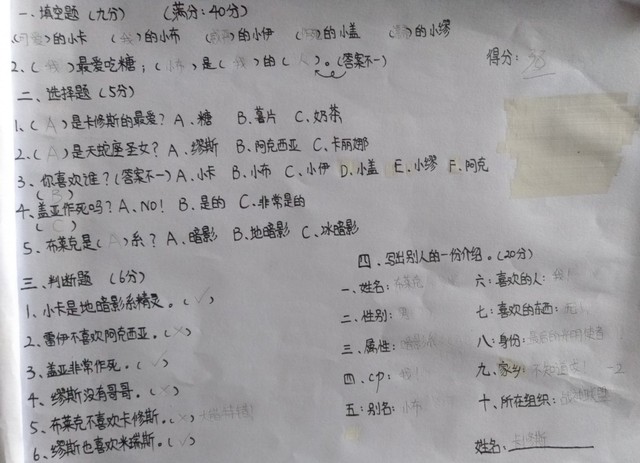 一、填空题(九分) (满分:40分)
(可爱)的小卡 (我)的小布 ( )的小伊 ( )的小盖 ( )的小缪
2、(我)最爱吃糖;(小布)是(我)的(人)。(答案不一) 得分:38
二、选择题(5分)
1、(A)是卡修斯的最爱? A、糖 B、薯片 C、奶茶
2、(A)是天蛇座圣女? A、缪斯 B、阿克西亚 C、卡丽娜
3、你喜欢谁?(答案不一) A、小卡 B、小布 C、小伊 D、小盖 E、小缪 F、阿克
(B)
4、盖亚作死吗? A、NO! B、是的 C、非常是的
(C)
5、布莱克是(A)系? A、暗影 B、地暗影 C、冰暗影
三、判断题 (6分)
1、小卡是地暗影系精灵。(✓)
2、雷伊不喜欢阿克西亚。(×)
3、盖亚非常作死。(✓)
4、缪斯没有哥哥。(×)
5、布莱克不喜欢卡修斯。(×)
6、缪斯也喜欢米瑞斯。(✓)
四、写出别人的一份介绍。(20分)
一、姓名:布莱克
二、性别:男
三、属性:暗影系
四、cp:我!
五:别名:小布
六:喜欢的人:我!
七:喜欢的东西:无!
八:身份:
九、家乡:不知道诶! -2
十、所在组织:战神联盟
姓名:卡修斯